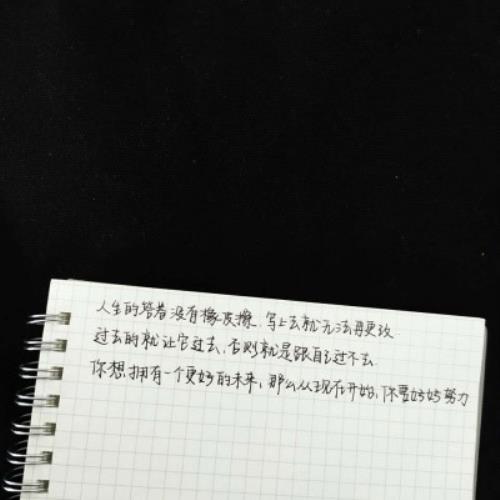 人生的答卷没有橡皮擦,写上去就无法再更改
过去的就让它过去,否则就是跟自己过不去
你想拥有一个更好的未来,那么从现在开始,你要好好努力